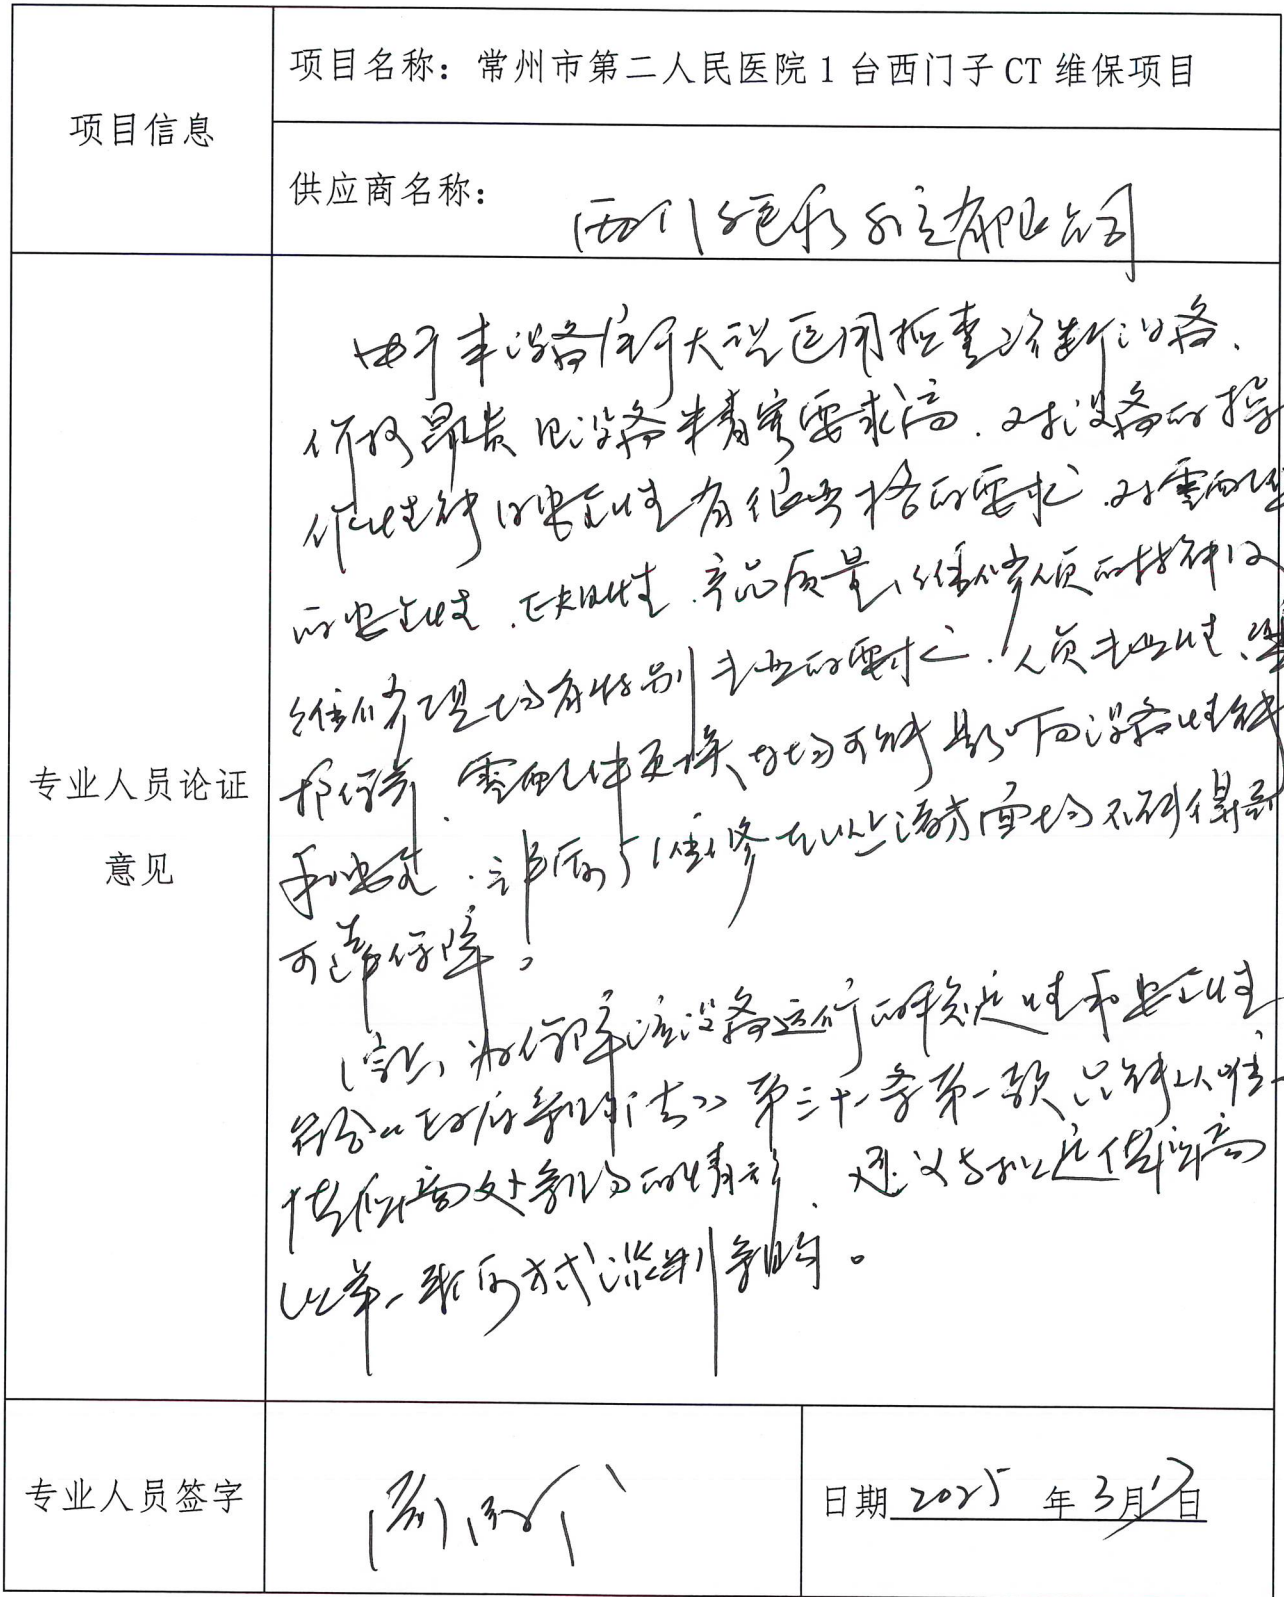 项目信息
项目名称：常州市第二人民医院1台西门子CT维保项目
供应商名称：
西门子医疗系统有限公司
专业人员论证
意见
由于本设备属于大型医用检查诊断设备、
价格昂贵且设备精密要求高、对设备的操
作性能的安全性有很严格的要求、对零配件
的安全性、产品质量、维修人员的技能及
维修现场有特别专业的要求、人员专业性、
零配件更换均可能影响设备性能
和安全、维修方面均不能得到
可靠保障。
综上、为保障该设备运行的稳定性和安全性
符合《政府采购法》第三十一条第一款只能从唯一
供应商处采购的情形、建议与拟定供应商
以单一来源方式谈判采购。
专业人员签字
日期 2025 年 3月17日